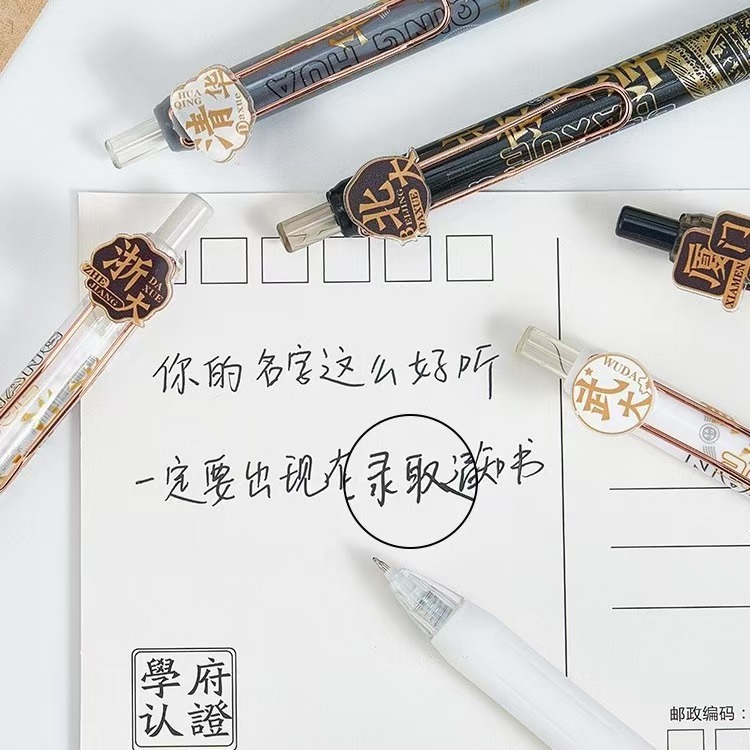 QING HUA
HUA
QING
清华
Daxue
北大
BEIJING
DAXUE
浙大
ZHE
JIANG
DA
XUE
厦门
XIAMEN
WUDA
武大
你的名字这么好听
一定要出现在录取通知书
學府
认證
邮政编码：